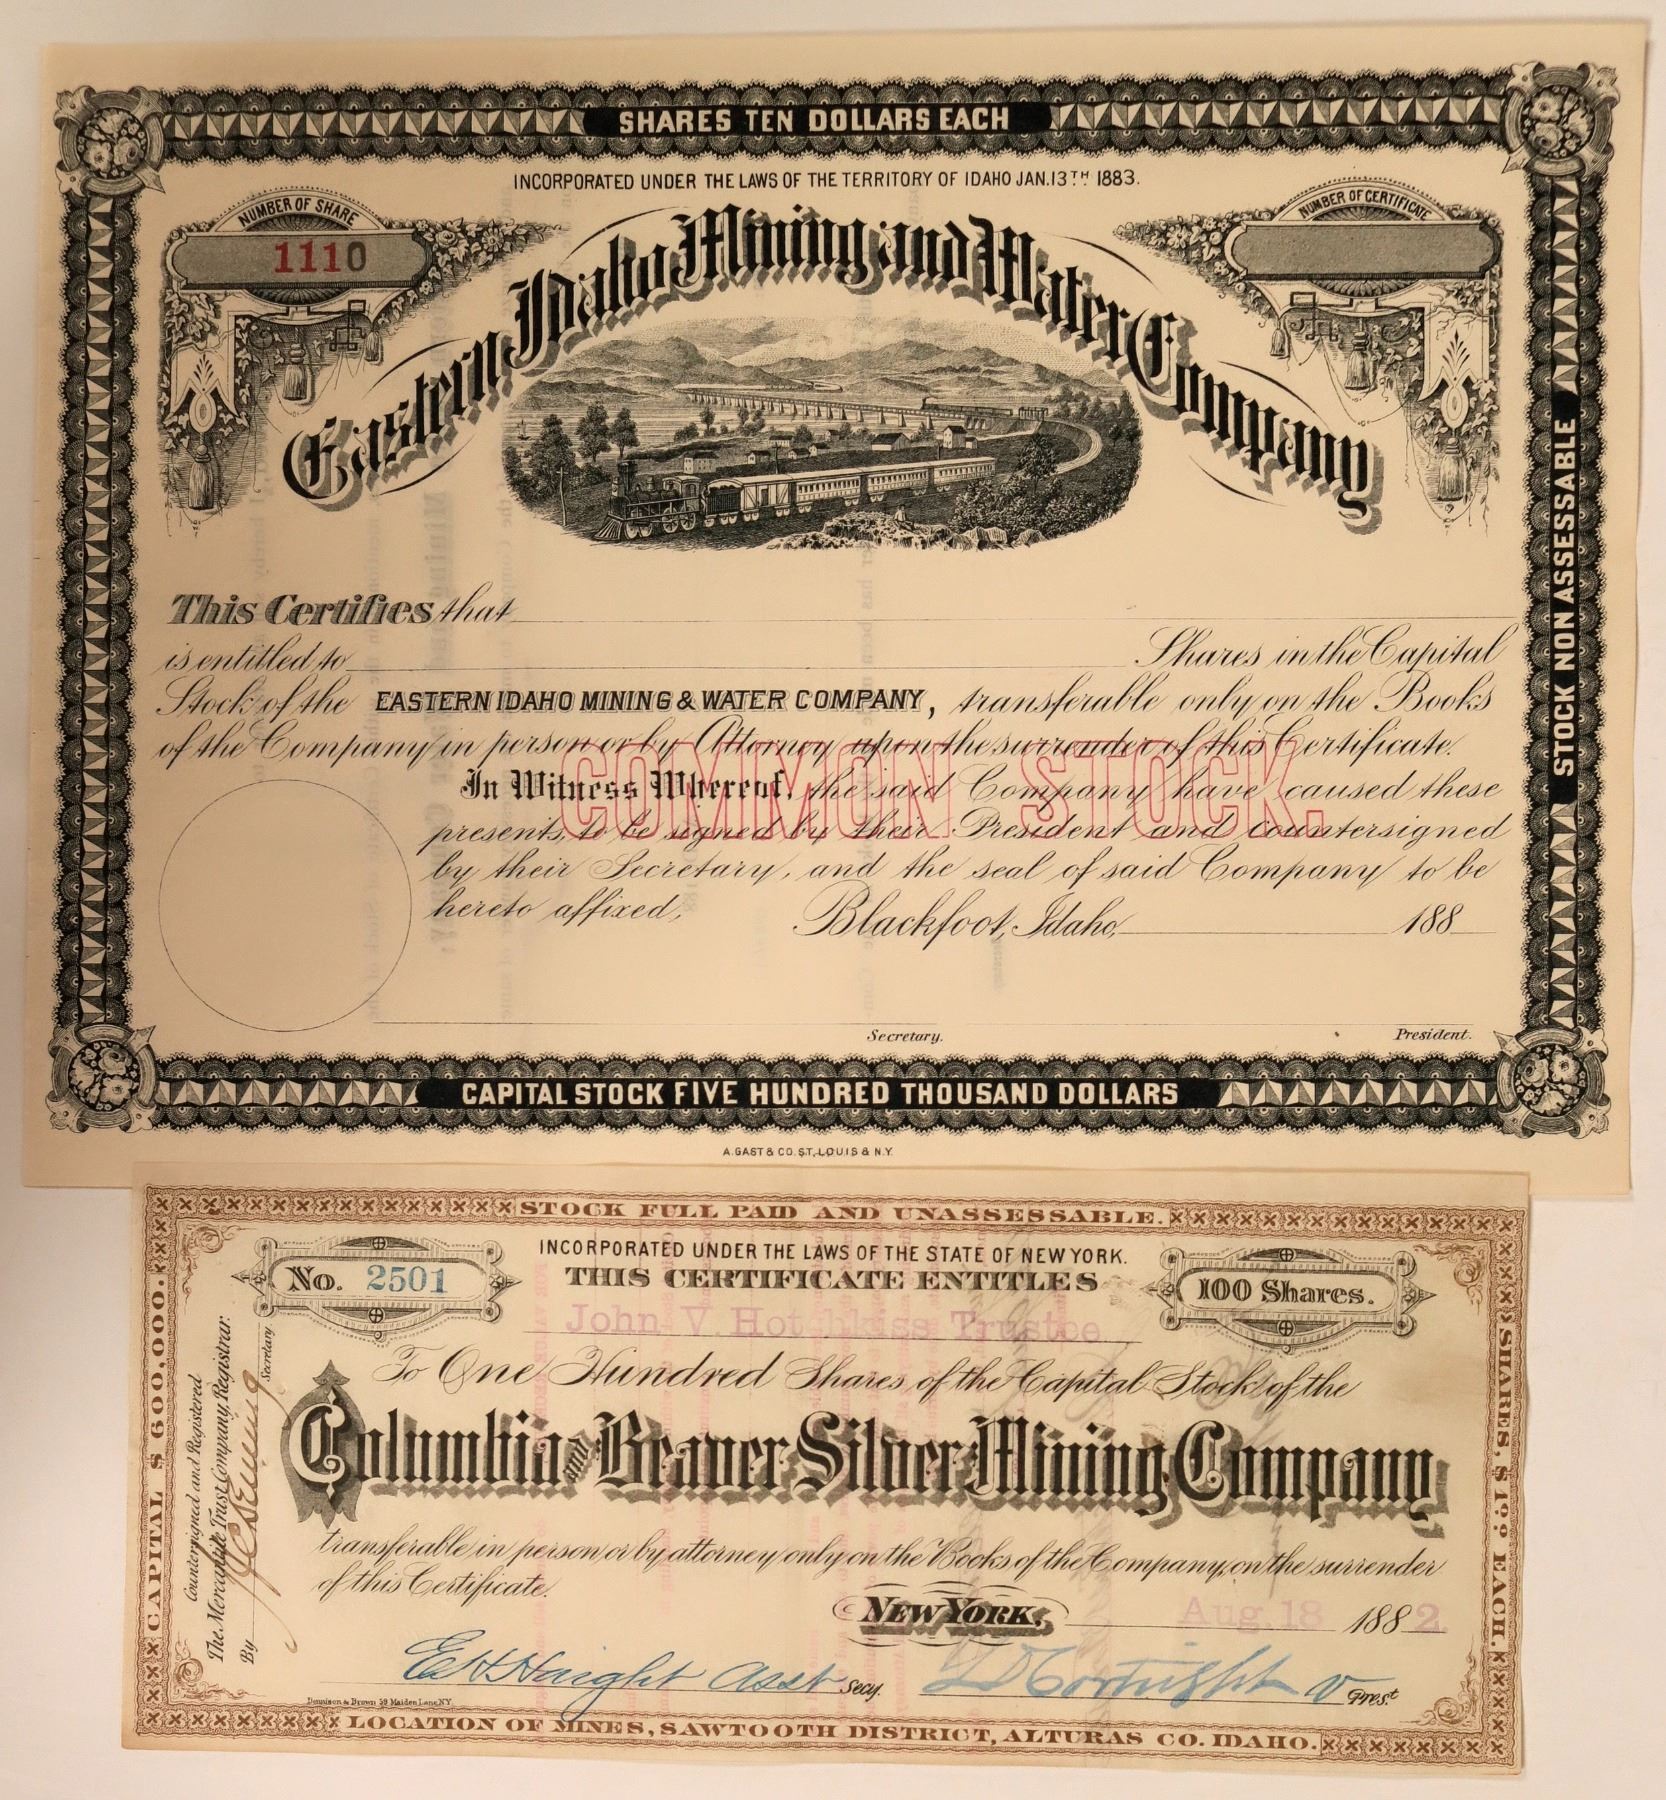 SHARES TEN DOLLARS EACH
INCORPORATED UNDER THE LAWS OF THE TERRITORY OF IDAHO JAN. 13TH 1883.
NUMBER OF SHARE
1110
NUMBER OF CERTIFICATE
Eastern Idaho Mining and Water Company
This Certifies that
is entitled to Shares in the Capital
Stock of the EASTERN IDAHO MINING & WATER COMPANY, transferable only on the Books
of the Company in person or by Attorney upon the surrender of this Certificate.
COMMON STOCK.
In Witness Whereof, the said Company have caused these
presents, to be signed by their President and countersigned
by their Secretary, and the seal of said Company to be
hereto affixed,
Blackfoot, Idaho, 188
Secretary. President.
STOCK NON ASSESSABLE
CAPITAL STOCK FIVE HUNDRED THOUSAND DOLLARS
A. GAST & CO. ST. LOUIS & N.Y.
STOCK FULL PAID AND UNASSESSABLE.
INCORPORATED UNDER THE LAWS OF THE STATE OF NEW YORK.
No. 2501
THIS CERTIFICATE ENTITLES
100 Shares.
John V. Hotchkiss Trustee
To One Hundred Shares of the Capital Stock of the
Columbia and Beaver Silver Mining Company
transferable in person or by attorney only on the Books of the Company, on the surrender
of this Certificate.
NEW YORK, Aug. 18 1882.
E H Haight Asst Secy. Cortright V Prest
Dennison & Brown 59 Maiden Lane NY
CAPITAL $600,000.
Countersigned and Registered
The Mercantile Trust Company, Registrar.
By Secretary
SHARES, $1.00 EACH.
LOCATION OF MINES, SAWTOOTH DISTRICT, ALTURAS CO. IDAHO.